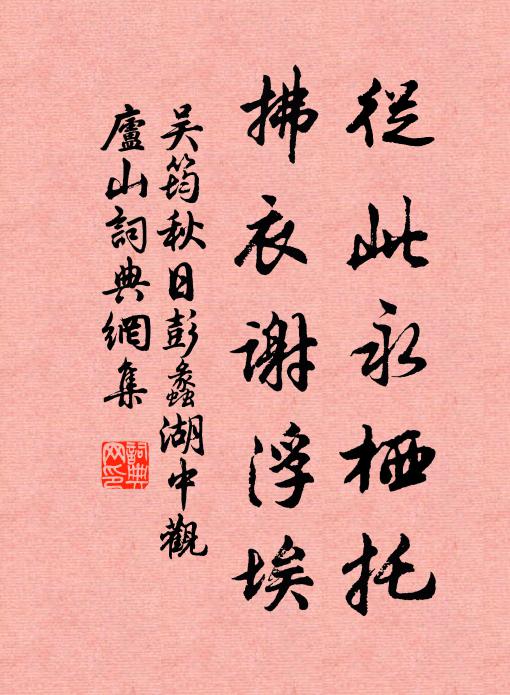 從此永栖托
拂衣謝浮埃
吴筠秋日彭蠡湖中觀
廬山詞典網集
詞典网印